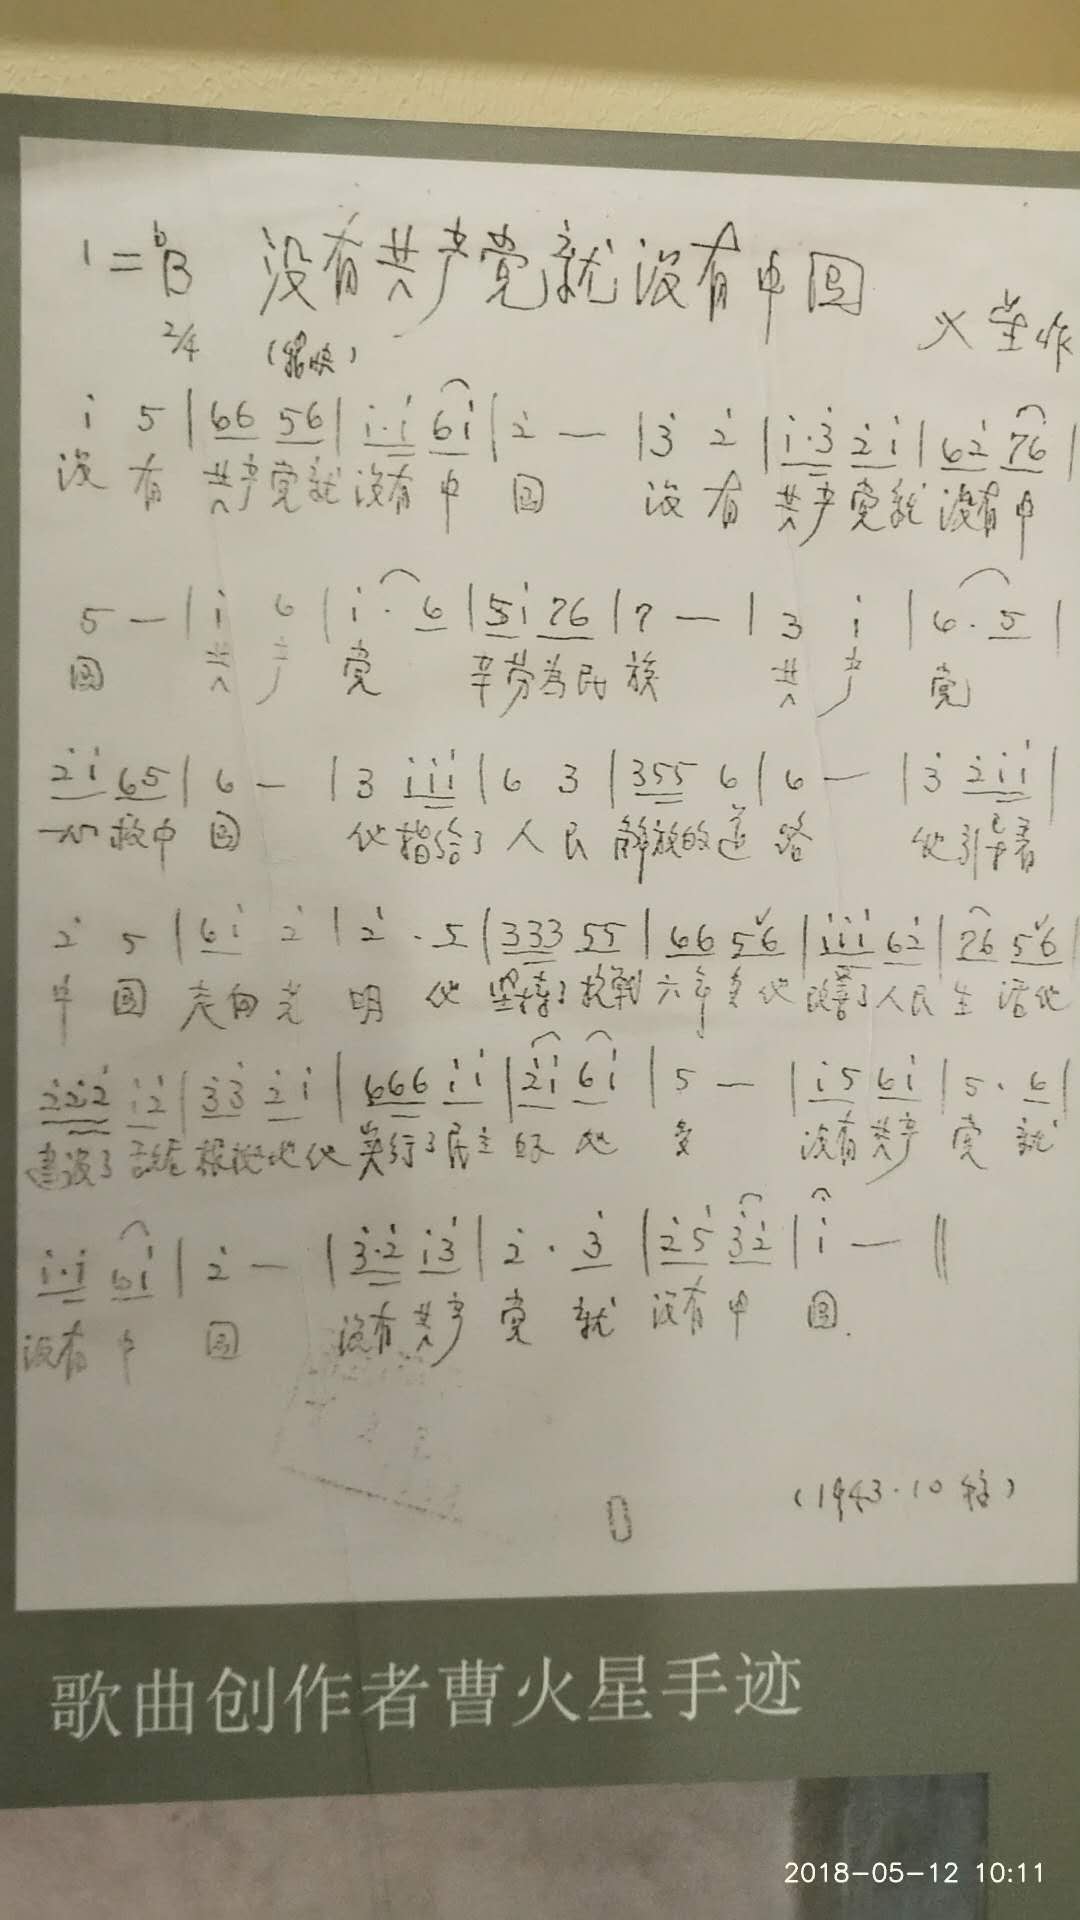 1=♭B 没有共产党就没有中国
2/4 (稍快) 火星作
i 5 | 66 56 | i·i 6i | 2̇ — | 3̇ 2̇ | i·3̇ 2̇i | 62̇ 76 |
没有共产党就没有中国 没有共产党就没有中
5 — | i 6 | i· 6 | 5i 76 | 7 — | 3 i | 6· 5 |
国 共产党 辛劳为民族 共产党
2̇i 65 | 6 — | 3 iii | 6 3 | 355 6 | 6 — | 3̇ 2̇ii |
一心救中国 他指给了人民解放的道路 他引导着
2̇ 5 | 6i 2̇ | 2̇· 5 | 333 55 | 66 56 | iii 62̇ | 76 56 |
中国走向光明 他坚持了抗战六年多他改善了人民生活他
2̇2̇2̇ i2̇ | 3̇3̇ 2̇i | 666 ii | 2̇i 6i | 5 — | i5 6i | 5· 6 |
建设了敌后根据地他实行了民主好处多 没有共产党就
i·i 6i | 2̇ — | 3̇·2̇ i3̇ | 2̇· 3̇ | 2̇5̇ 3̇2̇ | i — ‖
没有中国 没有共产党就没有中国.
(1943·10 )
歌曲创作者曹火星手迹
2018-05-12 10:11